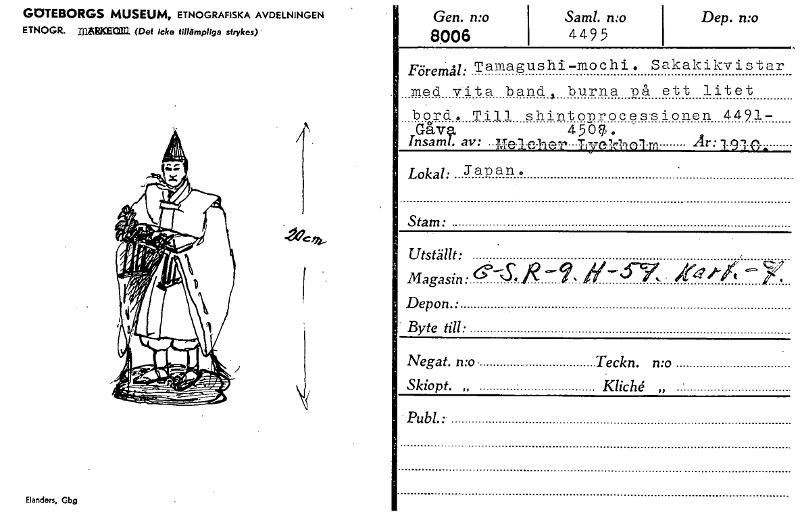 GÖTEBORGS MUSEUM, ETNOGRAFISKA AVDELNINGEN
ETNOGR. (Det icke tillämpliga strykes)
20cm
Elanders, Gbg
Gen. n:o Saml. n:o Dep. n:o
8006 4495
Föremål: Tamagushi-mochi. Sakakikvistar
med vita band, burna på ett litet
bord. Till shintoprocessionen 4491-
Gåva 4508.
Insaml. av: Melcher Lyckholm År: 1910.
Lokal: Japan.
Stam:
Utställt:
Magasin: G-S.R-9. H-57. Kart.-7.
Depon.:
Byte till:
Negat. n:o Teckn. n:o
Skiopt. „ Kliché „
Publ.: